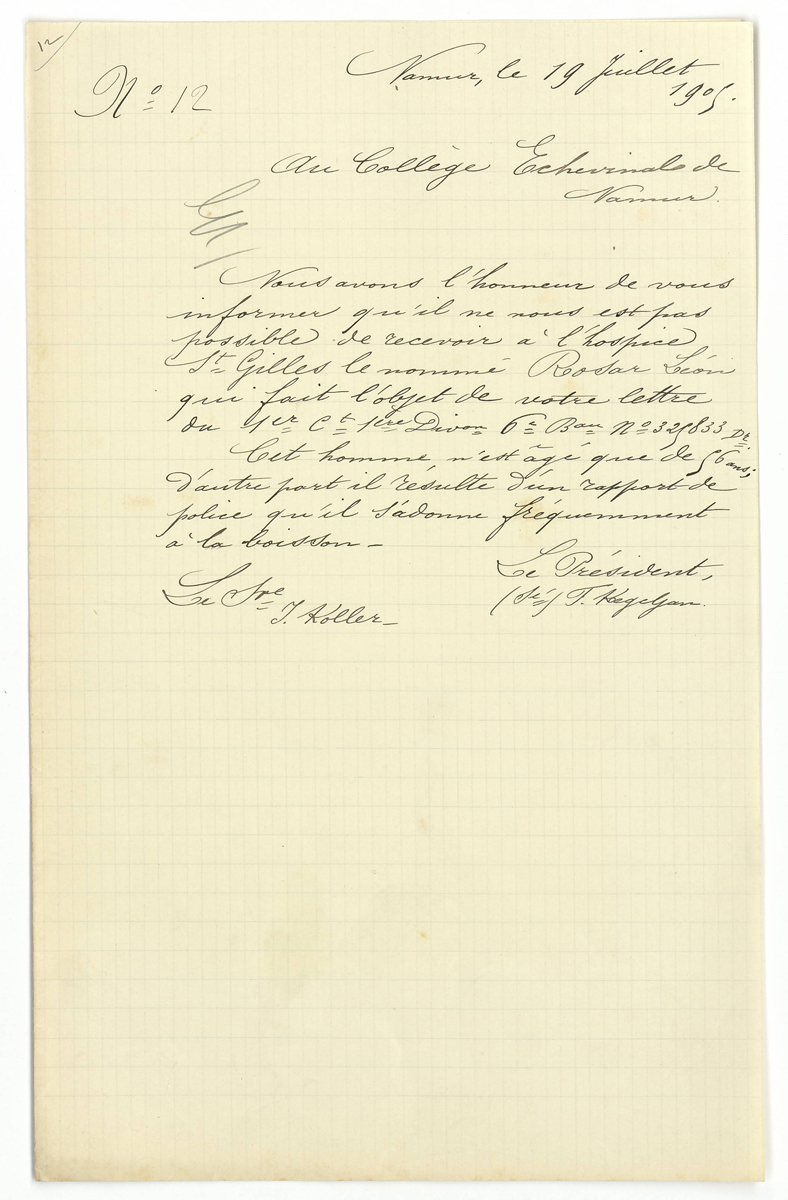 12
Namur, le 19 Juillet
1905.
No 12
Au Collège Echevinals de
Namur.
Nous avons l'honneur de vous
informer qu'il ne nous est pas
possible de recevoir à l'hospice
St Gilles le nommé Rosar Léon
qui fait l'objet de votre lettre
du 1er Ct 1ère Divon 6e Bau No 325833 Dt.
Cet homme n'est âgé que de 56 ans;
d'autre part il résulte d'un rapport de
police qu'il s'adonne fréquemment
à la boisson -
Le Président,
(Sé) F. Kegeljan.
Le Sre
J. Koller -